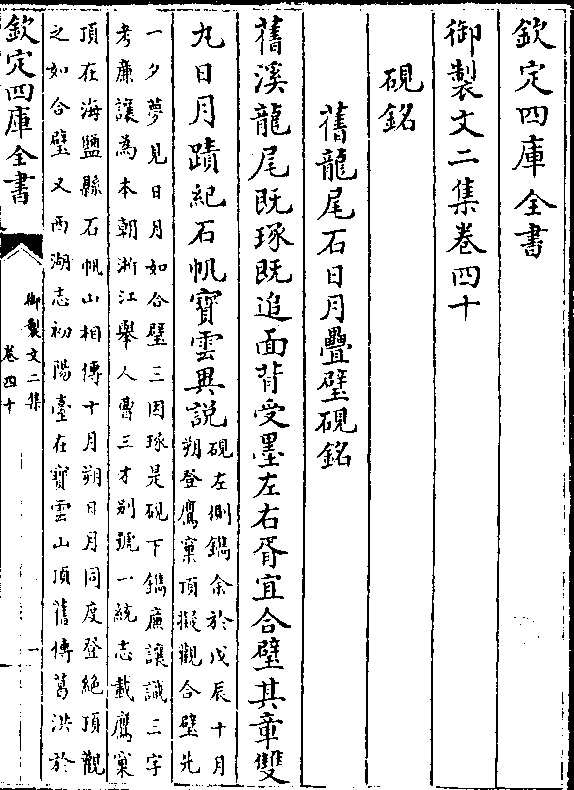 欽定四庫全書
御製文二集卷四十
硯銘
舊龍尾石日月疊璧硯銘
舊溪龍尾既琢既追面背受墨左右胥宜合璧其章雙
九日月蹟紀石帆寶雲異說硯左側鐫余於戊辰十月
朔登鷹窠頂擬觀合璧先
一夕夢見日月如合璧三因琢是硯下鐫廉讓識三字
考廉讓為本朝浙江舉人曹三才别號一統志載鷹窠
頂在海鹽縣石帆山相傳十月朔日月同度登絶頂觀
之如合璧又西湖志初陽臺在寶雲山頂舊傳葛洪於
欽定四庫全書
御製文二集
卷四十
一